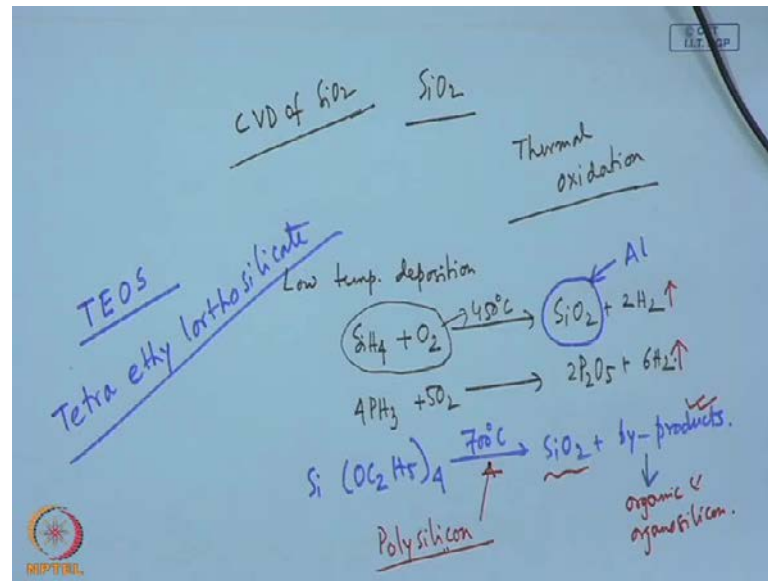 © CET
I.I.T. KGP
CVD of SiO2 SiO2
Thermal
oxidation
TEOS
Tetra ethy lorthosilicate
Low temp. deposition
SiH4 + O2 → 450°C SiO2 + 2H2 ↑
Al
4PH3 + 5O2 → 2P2O5 + 6H2 ↑
Si (OC2H5)4 700°C → SiO2 + by-products.
Polysilicon
organic &
organosilicon.
NPTEL